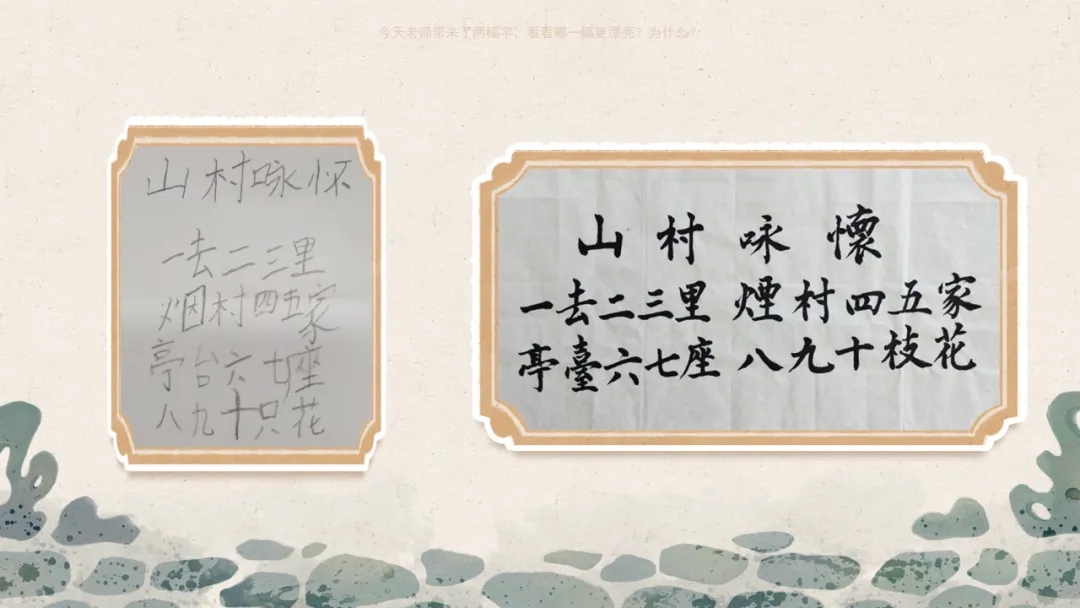 今天老师带来了两幅字，看看哪一幅更漂亮？为什么？
山村咏怀
一去二三里
烟村四五家
亭台六七座
八九十只花
山村咏懷
一去二三里 煙村四五家
亭臺六七座 八九十枝花